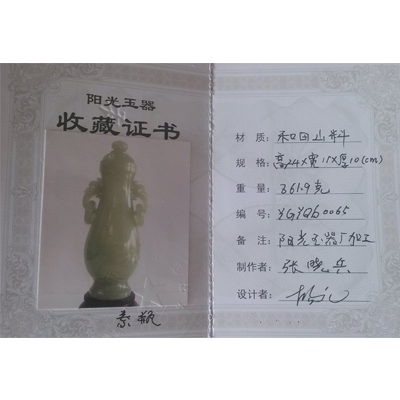 阳光玉器
收藏证书
素瓶
材 质: 和田山料
规 格: 高24×宽11×厚10(cm)
重 量: 861.9克
编 号: YGYQb0065
备 注: 阳光玉器厂加工
制作者: 张晓兵
设计者: